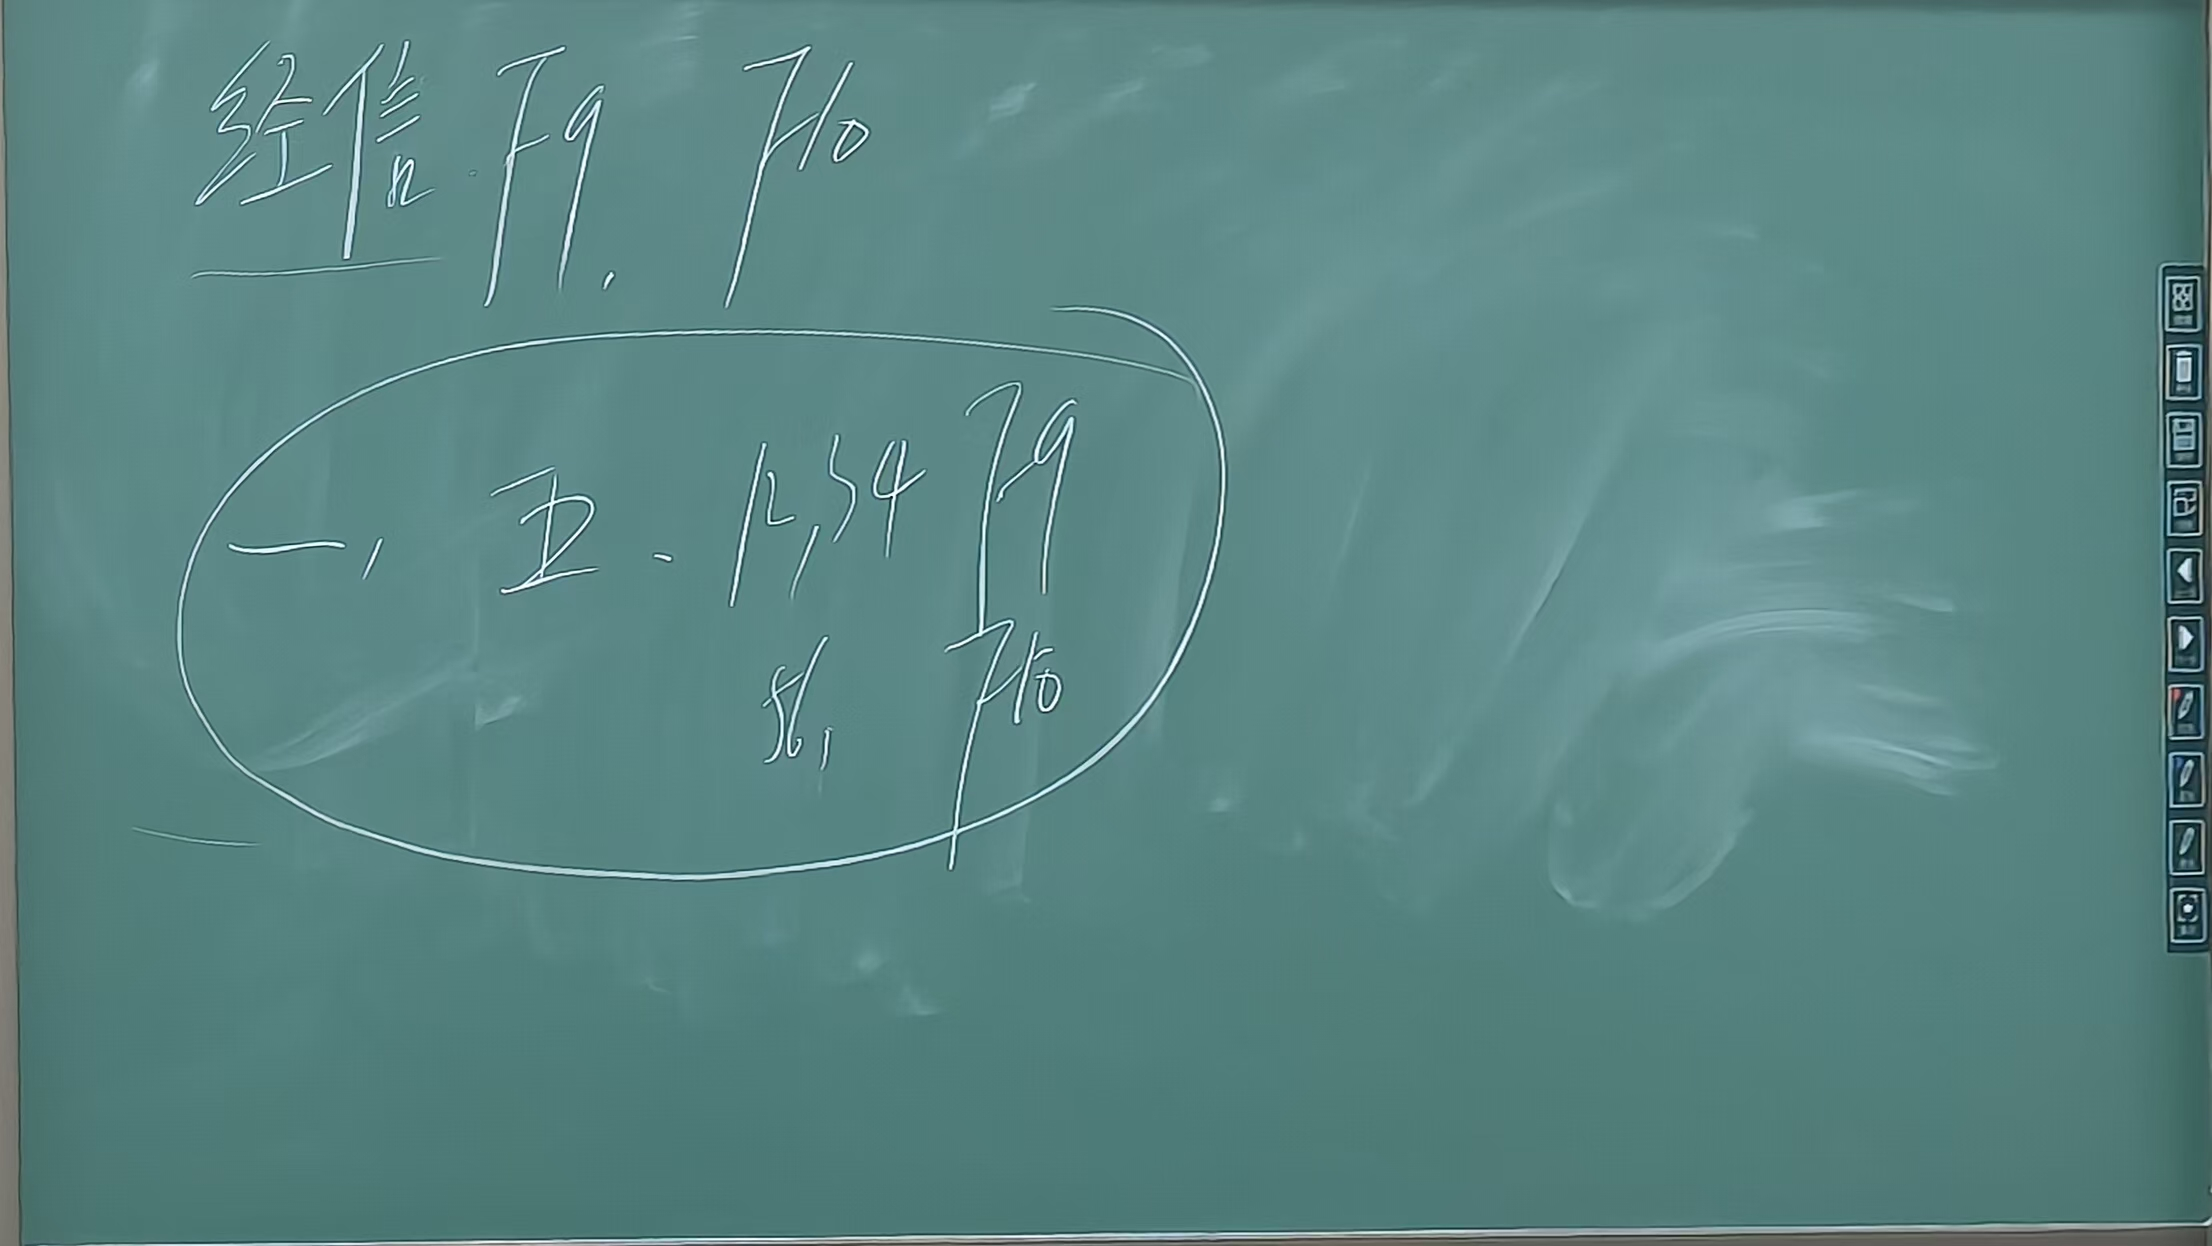 经信 F9. F10
一, 五. 12,34 F9
56, F10